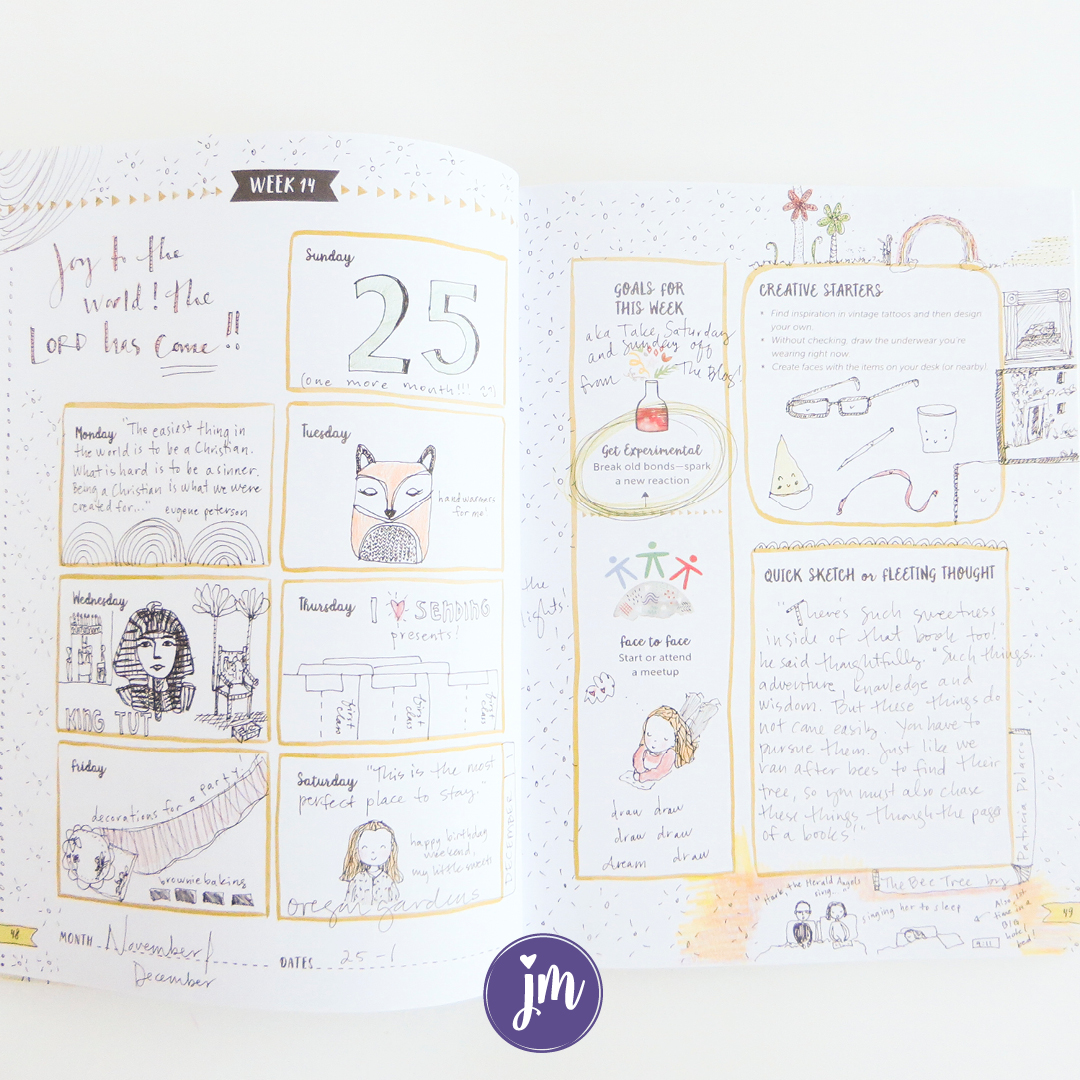 WEEK 14
Joy to the
world! the
LORD has come!!
Sunday
25
(one more month!!!
Monday "The easiest thing in
the world is to be a Christian.
What is hard is to be a sinner.
Being a Christian is what we were
created for..." eugene peterson
Tuesday
handwarmers
for me!
Wednesday
KING TUT
Thursday
I SENDING
presents!
first class
first class
first class
Friday
decorations for a party!
brownie baking
Saturday "This is the most
perfect place to stay."
happy birthday
weekend,
my little sweets
oregon gardens
DECEMBER 1
48
MONTH November/
December
DATES 25-1
the
lights!
GOALS FOR
THIS WEEK
aka Take Saturday
and Sunday off
from The Blog!
Get Experimental
Break old bonds—spark
a new reaction
face to face
Start or attend
a meetup
draw draw
draw draw
dream draw
CREATIVE STARTERS
• Find inspiration in vintage tattoos and then design
your own.
• Without checking, draw the underwear you're
wearing right now
• Create faces with the items on your desk (or nearby).
QUICK SKETCH or FLEETING THOUGHT
"There's such sweetness
inside of that book too!"
he said thoughtfully. "Such things...
adventure, knowledge and
wisdom. But these things do
not come easily. You have to
pursue them. Just like we
ran after bees to find their
tree, so you must also chase
these things through the pages
of a books!"
The Bee Tree by
Patricia Polacco
"Hark the Herald Angels
sing..."
singing her to sleep
9:11
Also 1st
time in a
BIG
bed!
49
jm